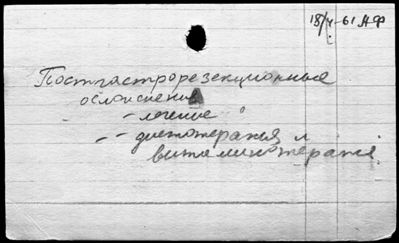 18/V-61 АФ
Постгастрорезекционные
осложнения
- лечение
- - диетотерапия и
витаминотерапия